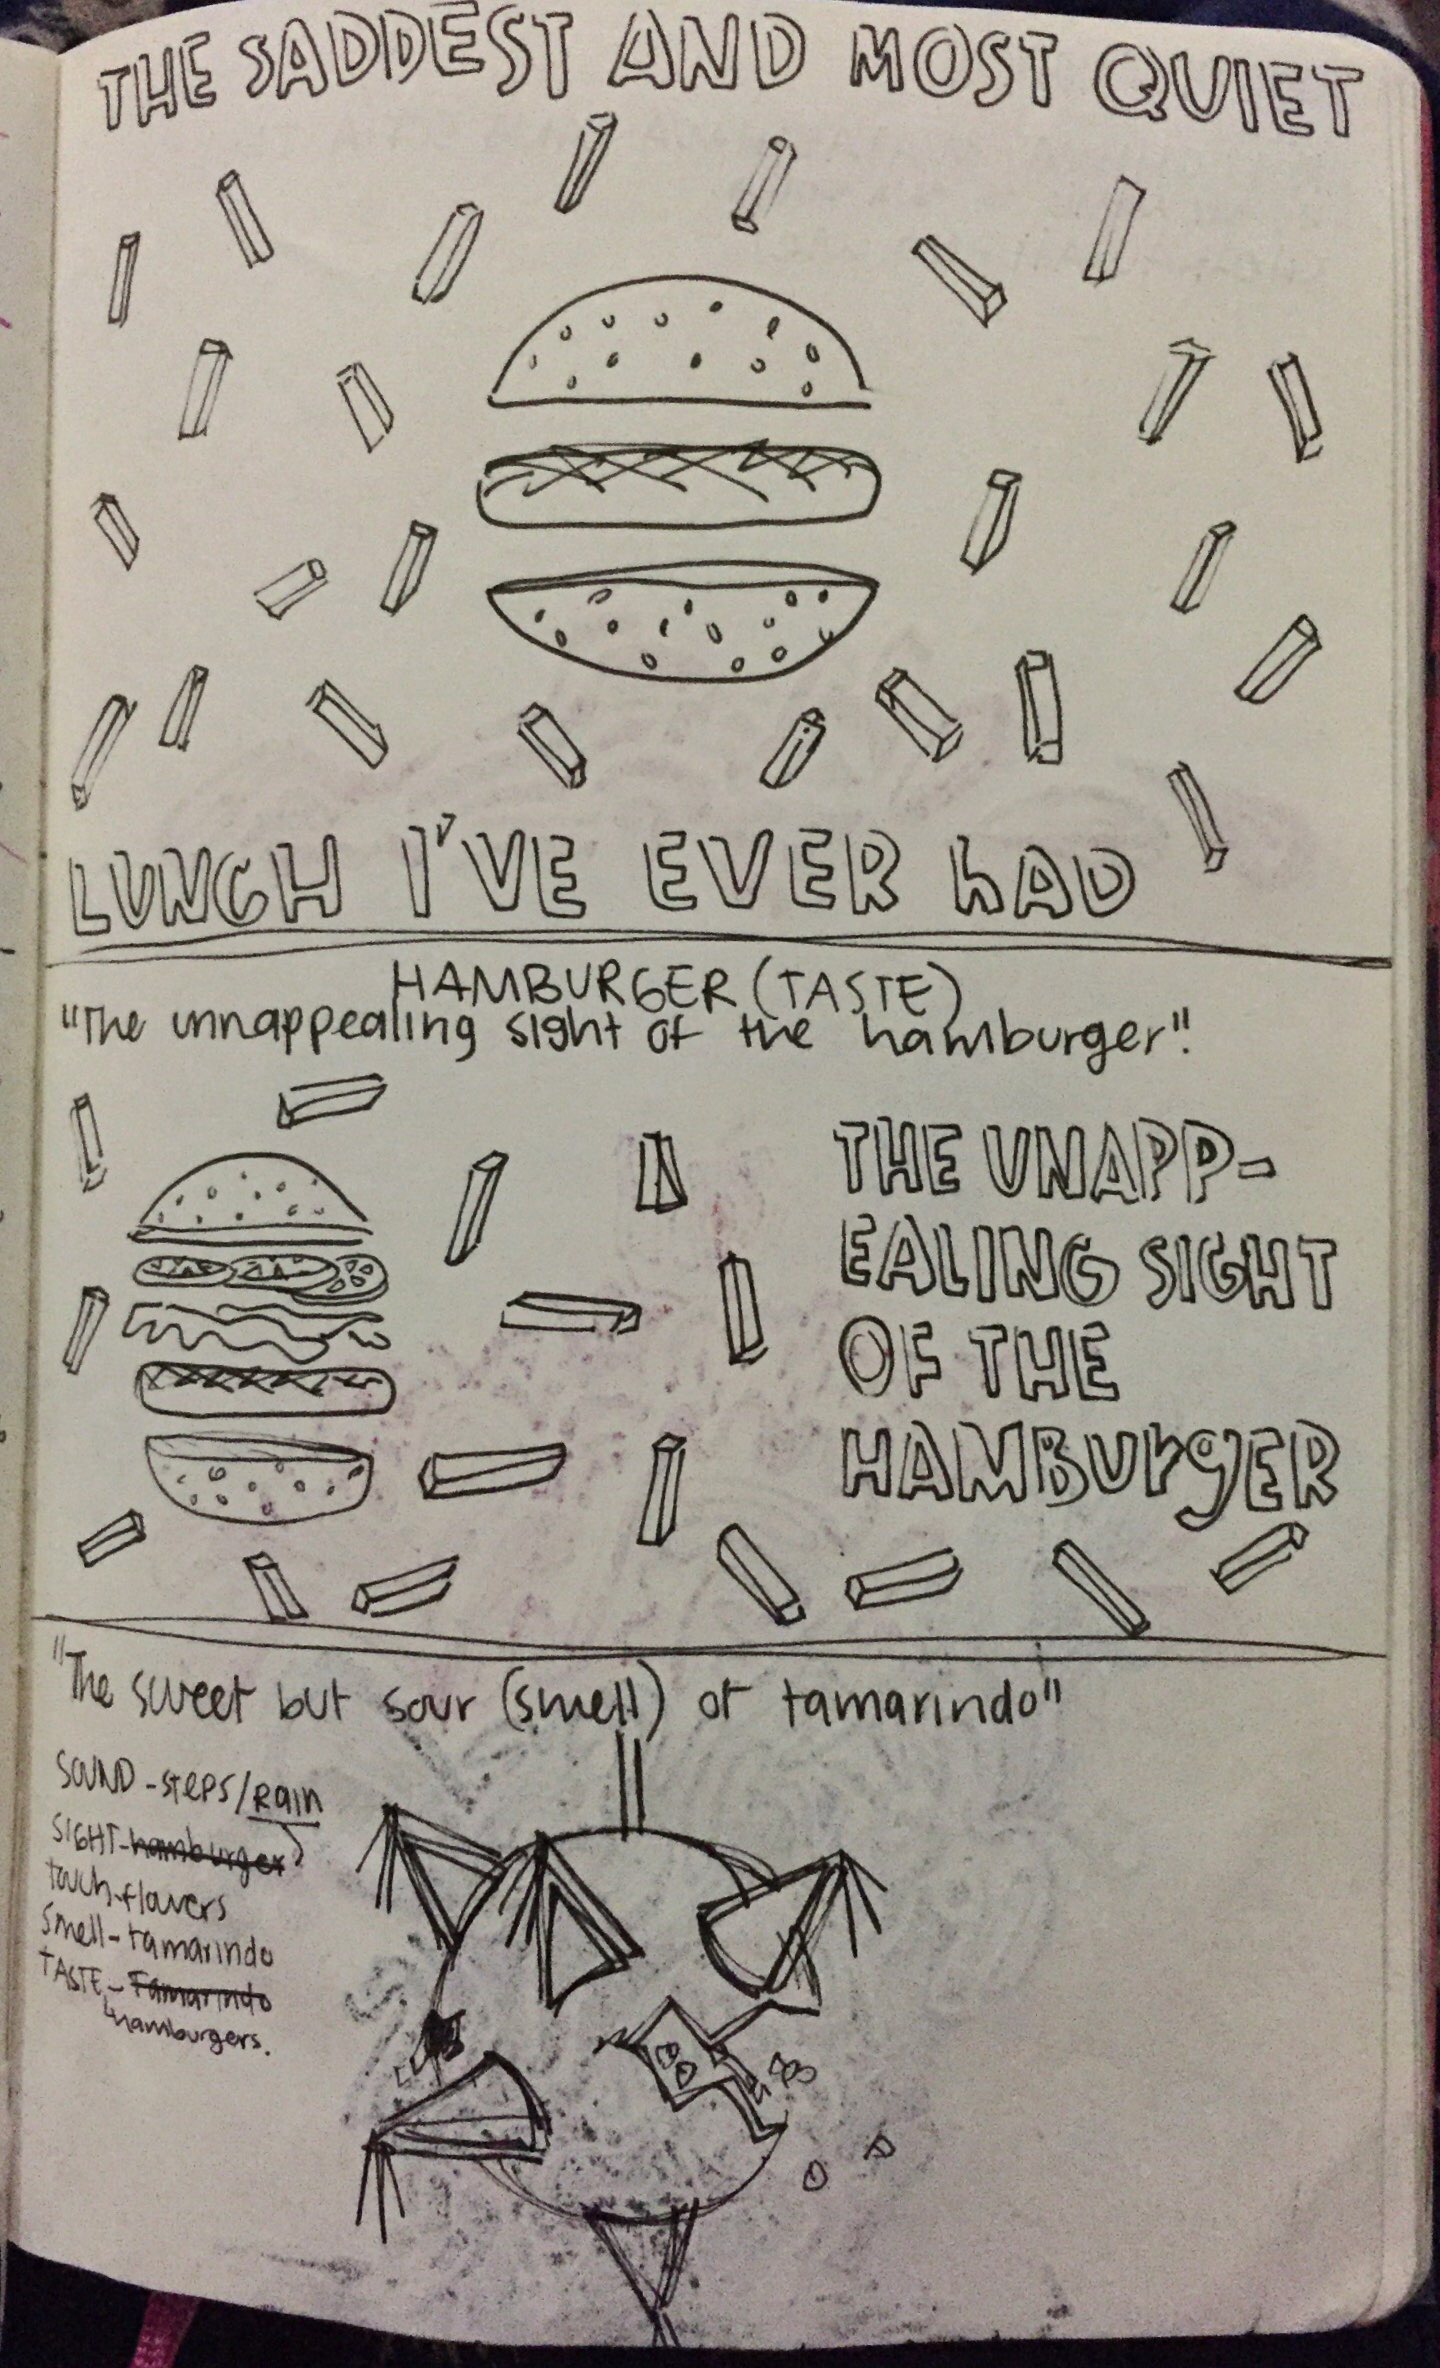 THE SADDEST AND MOST QUIET
LUNCH I'VE EVER hAD
HAMBURGER (TASTE)
"The unnappealing sight of the hamburger".
THE UNAPP-
EALING SIGHT
OF THE
HAMBUrgER
"The sweet but sour (smell) of tamarindo"
SOUND - STEPS/RAIN
SIGHT - hamburger
touch - flavers
smell - tamarindo
TASTE - Tamarindo
hamburgers.